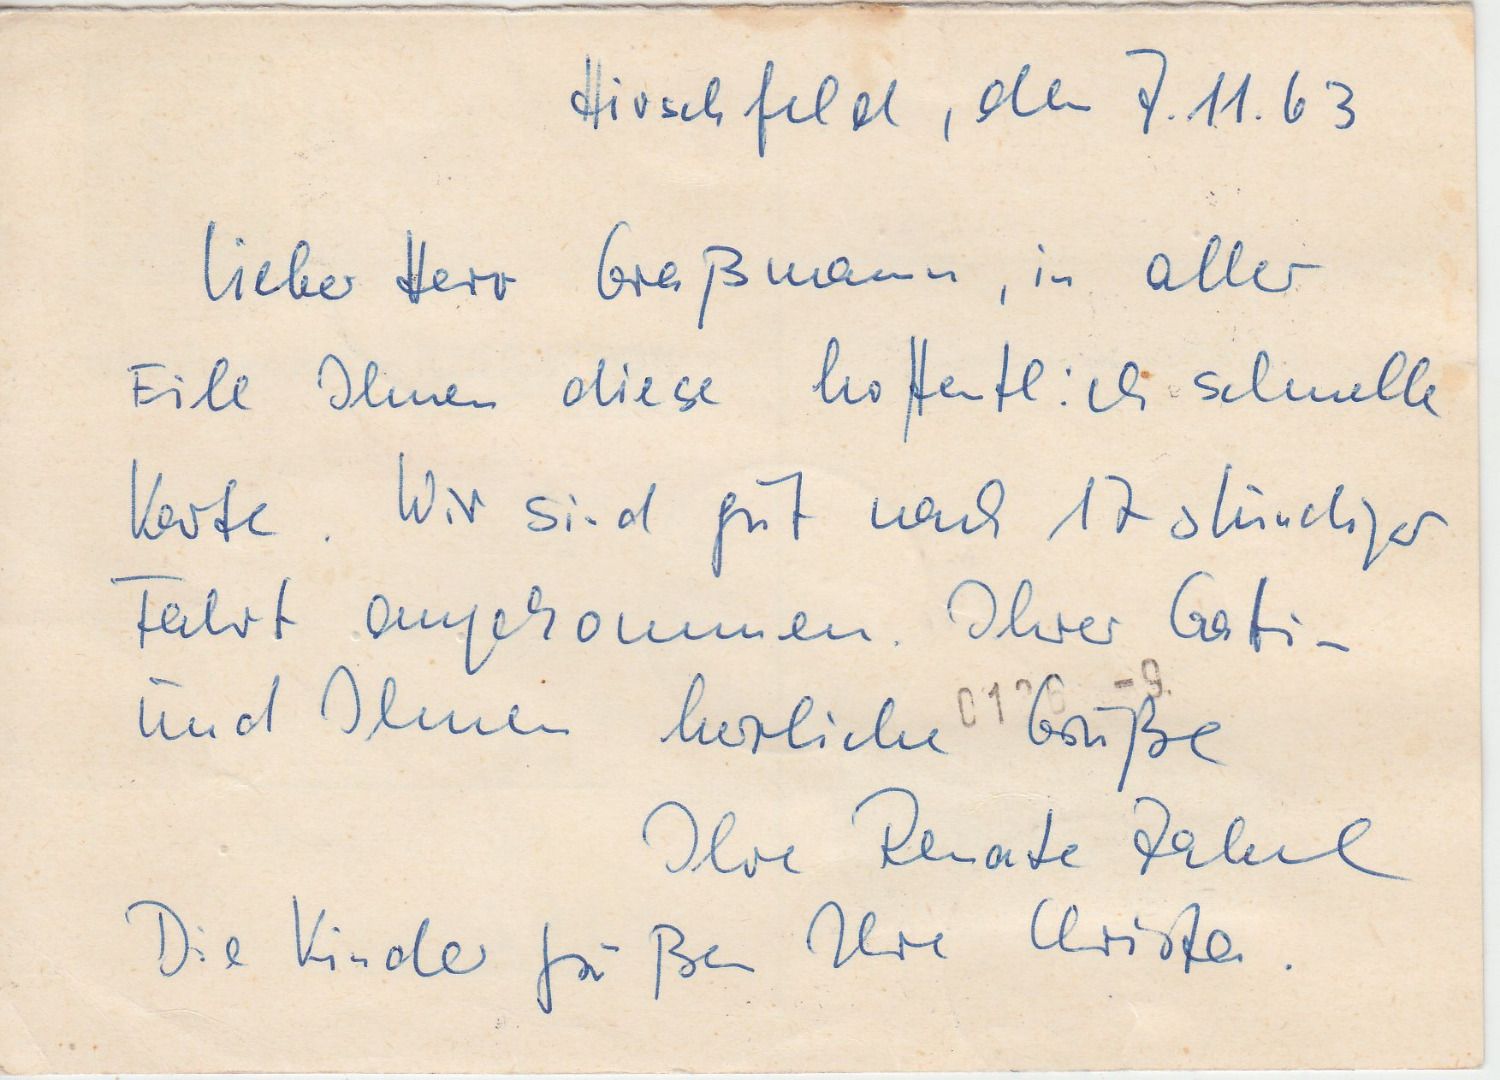 Hirschfeld, den 7.11.63
Lieber Herr Graßmann, in aller
Eile Ihnen diese hoffentlich schnelle
Karte. Wir sind gut nach 17 stündiger
Fahrt angekommen. Ihrer Gattin
und Ihnen herzliche Grüße
Ihre Renate
Die Kinder grüßen Ihre Christa.